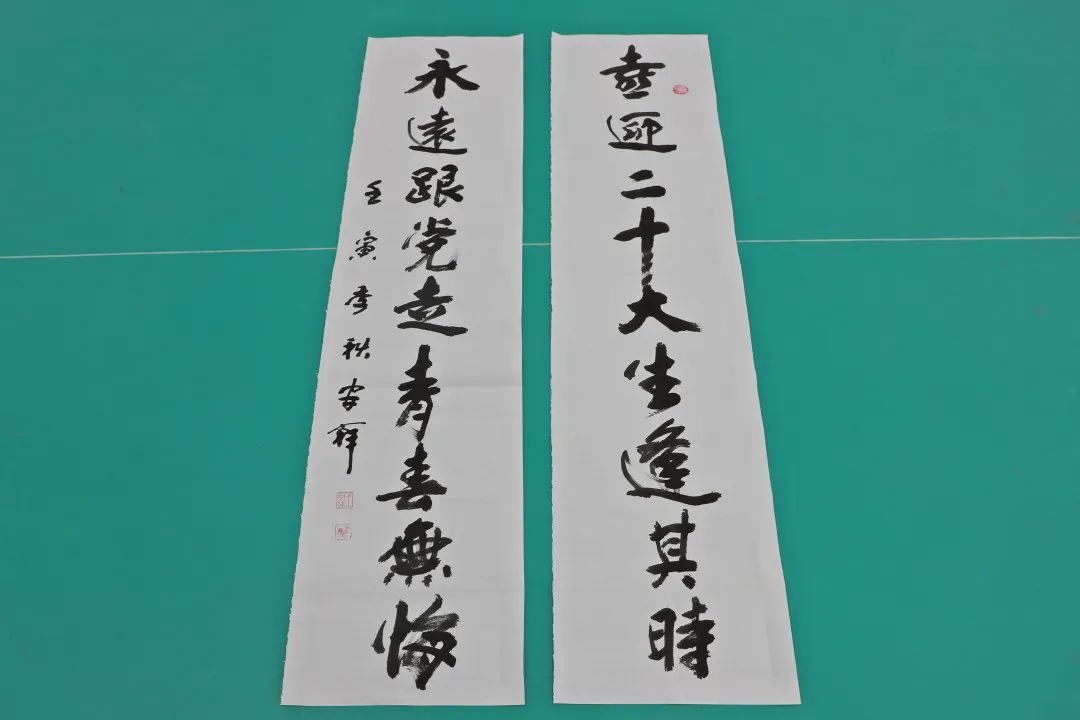 喜迎二十大生逢其時
永遠跟党走青春無悔
壬寅季秋安祥